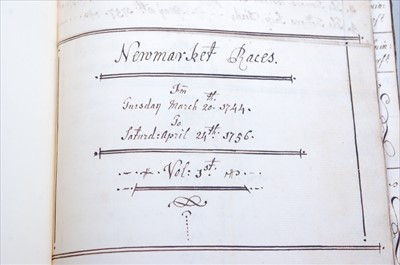 Newmarket Races.
Fm
Tuesday March 20.th 1744.
To
Saturd: April 24th: 1756.
Vol: 1st.